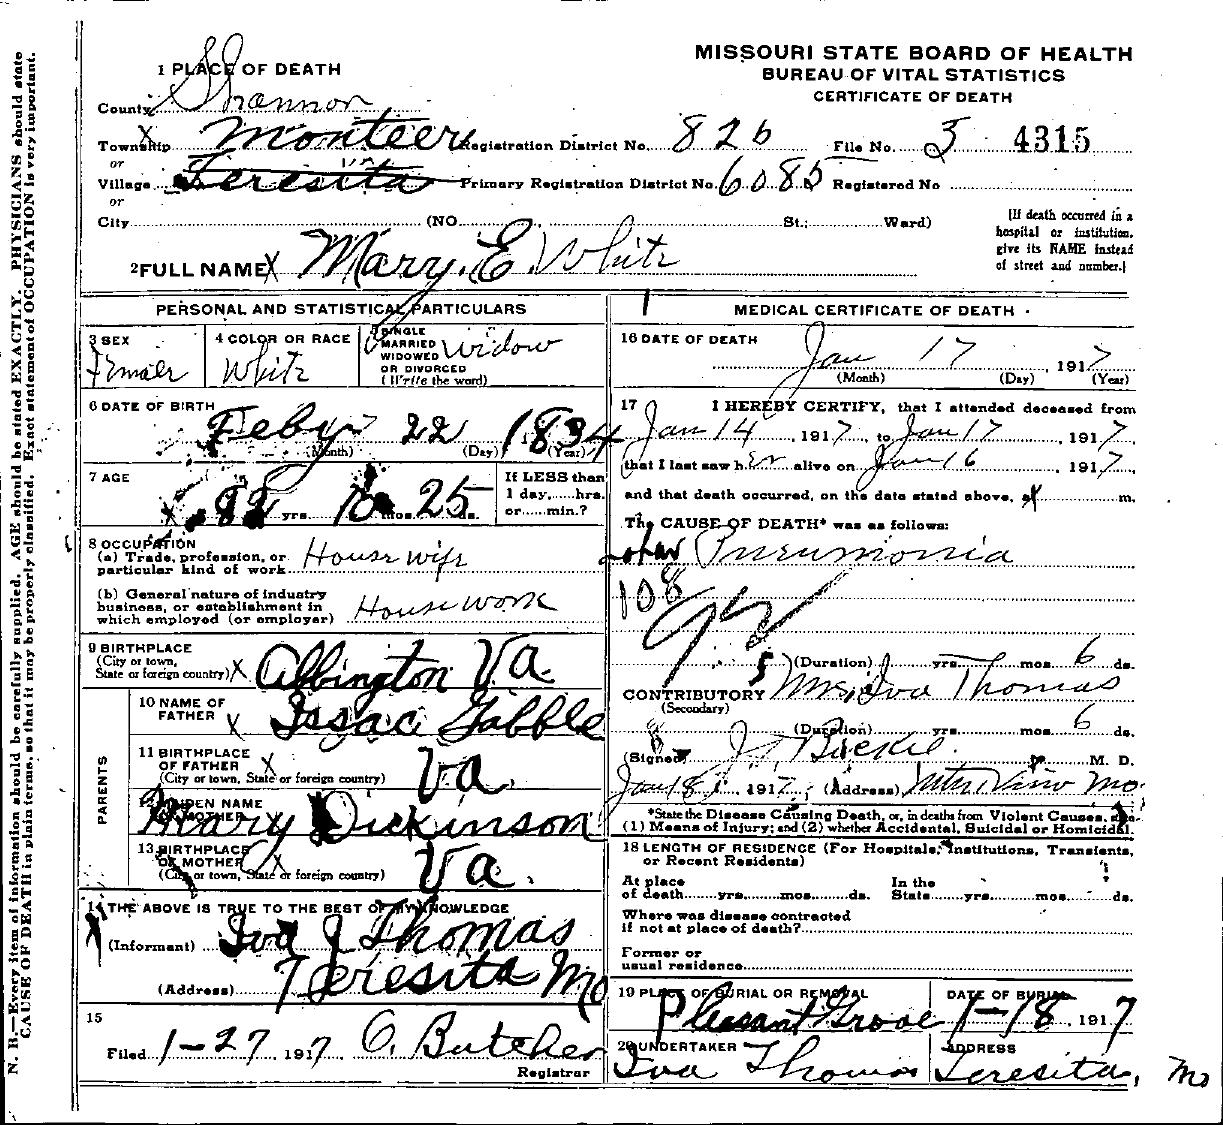 MISSOURI STATE BOARD OF HEALTH
BUREAU OF VITAL STATISTICS
CERTIFICATE OF DEATH
1 PLACE OF DEATH
County Shannon
Township Monteer Registration District No. 826 File No. 3 4315
or
Village Teresita Primary Registration District No. 6085 Registered No
or
City (NO. St.; Ward)
(If death occurred in a hospital or institution, give its NAME instead of street and number.)
2 FULL NAME Mary E. White
PERSONAL AND STATISTICAL PARTICULARS
3 SEX Female
4 COLOR OR RACE White
5 SINGLE MARRIED WIDOWED OR DIVORCED (Write the word) Widow
6 DATE OF BIRTH
Feby 22 1834
(Month) (Day) (Year)
7 AGE
82 yrs. 10 mos. 25 ds.
If LESS than 1 day,......hrs. or......min.?
8 OCCUPATION
(a) Trade, profession, or particular kind of work House wife
(b) General nature of industry business, or establishment in which employed (or employer) House work
9 BIRTHPLACE
(City or town, State or foreign country) Abbington Va
PARENTS
10 NAME OF FATHER Issac Gobble
11 BIRTHPLACE OF FATHER
(City or town, State or foreign country) Va.
12 MAIDEN NAME OF MOTHER Mary Dickinson
13 BIRTHPLACE OF MOTHER
(City or town, State or foreign country) Va.
14 THE ABOVE IS TRUE TO THE BEST OF MY KNOWLEDGE
(Informant) Iva J Thomas
(Address) Teresita Mo
15
Filed 1-27 1917 O. Butcher
Registrar
MEDICAL CERTIFICATE OF DEATH
16 DATE OF DEATH
Jan 17, 1917
(Month) (Day) (Year)
17 I HEREBY CERTIFY, that I attended deceased from
Jan 14, 1917, to Jan 17, 1917,
that I last saw her alive on Jan 16, 1917,
and that death occurred, on the date stated above, at m.
The CAUSE OF DEATH* was as follows:
Lobar Pneumonia
108
92
(Duration) yrs. mos. 6 ds.
CONTRIBUTORY Mrs. Iva Thomas
(Secondary)
(Duration) yrs. mos. 6 ds.
(Signed) M. D.
Jan 18, 1917, (Address) View Mo.
*State the Disease Causing Death, or, in deaths from Violent Causes, state
(1) Means of Injury; and (2) whether Accidental, Suicidal or Homicidal.
18 LENGTH OF RESIDENCE (For Hospitals, Institutions, Transients, or Recent Residents)
At place of death......yrs......mos......ds. In the State......yrs......mos......ds.
Where was disease contracted if not at place of death?
Former or usual residence
19 PLACE OF BURIAL OR REMOVAL Pleasant Grove
DATE OF BURIAL 1-18, 1917
20 UNDERTAKER Iva Thomas
ADDRESS Teresita, Mo
N. B.—Every item of information should be carefully supplied. AGE should be stated EXACTLY. PHYSICIANS should state
CAUSE OF DEATH in plain terms, so that it may be properly classified. Exact statement of OCCUPATION is very important.